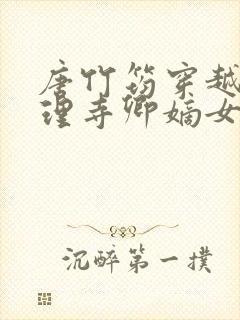 唐竹筠穿越
理寺卿嫡女
沉醉第一撲